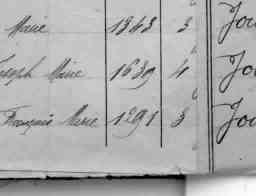 Marie 1343 3 Jou
Joseph Marie 1639 4 Jo
François Marie 1291 3 Jou